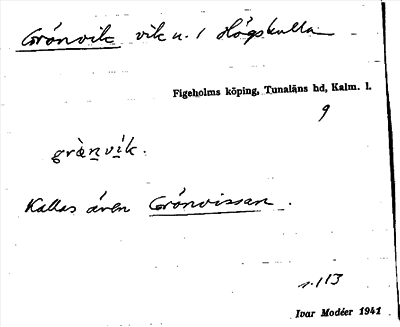 Grönvik vik u. / Högskulla
Figeholms köping, Tunaläns hd, Kalm. l.
9
grǜnvik.
Kallas även Grönvissan.
n. 113
Ivar Modéer 1941